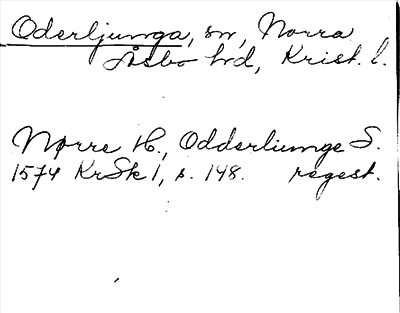 Oderljunga, sn, Norra
Åsbo hd, Krist. l.
Nørre H., Odderliunge S.
1574 KrSk 1, s. 148. regest.